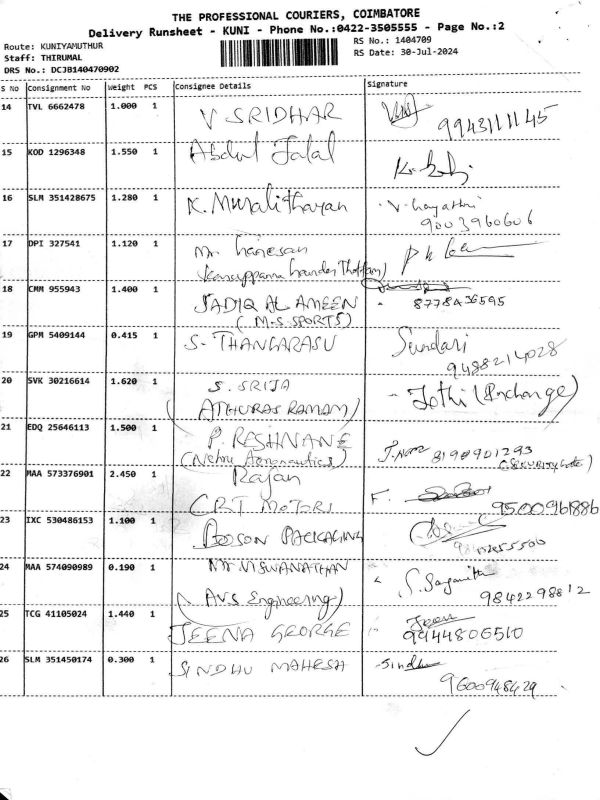 THE PROFESSIONAL COURIERS, COIMBATORE
Delivery Runsheet - KUNI - Phone No.:0422-3505555 - Page No.:2
Route: KUNIYAMUTHUR
RS No.: 1404709
Staff: THIRUMAL
RS Date: 30-Jul-2024
DRS No.: DCJB140470902
S No Consignment No Weight PCS Consignee Details Signature
14 TVL 6662478 1.000 1 V SRIDHAR
9943111145
15 KOD 1296348 1.550 1 Abdul Jalal
16 SLM 351428675 1.280 1 K. Muralitharan V. Gayathri
9003960606
17 DPI 327541 1.120 1 Mr. Ganesan
18 CMM 955943 1.400 1 SADIQ AL AMEEN 8778436595
(M.S. SPORTS)
19 GPM 5409144 0.415 1 S. THANGARASU Sundari
9488214028
20 SVK 30216614 1.620 1 S. SRIJA - Jothi (Inchange)
(ATHURAS RAMAM)
21 EDQ 25646113 1.500 1 P. RESHNANE
(Nehru Aeronautics) 8190901293
22 MAA 573376901 2.450 1 Rajan
CRT MOTORS 9500961886
23 IXC 530486153 1.100 1 PACKAGING
24 MAA 574090989 0.190 1 Mr. VISWANATHAN
(AVS Engineering) 9842298812
25 TCG 41105024 1.440 1 JEENA GEORGE Jeena
9944806510
26 SLM 351450174 0.300 1 SINDHU MAHESH Sindhu
9600948429